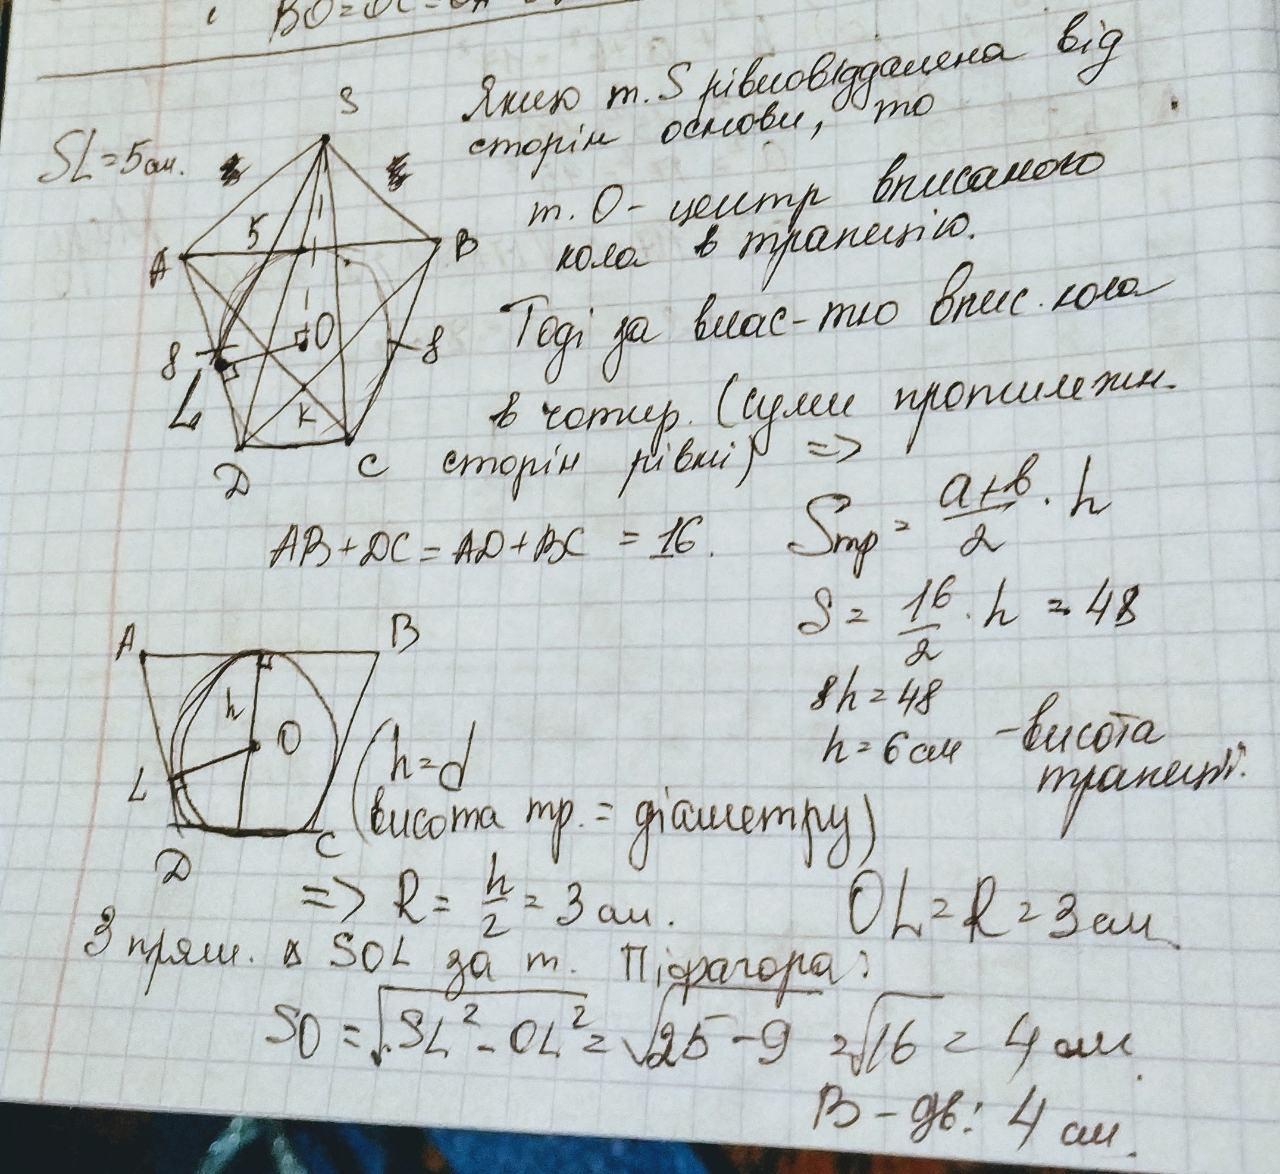 BO=OC=OA
S
SL=5см.
Якщо т. S рівновіддалена від
сторін основи, то
т. O - центр вписаного
кола в трапецію.
5
A
B
O
8
8
L
K
D
C
Тоді за влас-тю впис. кола
в чотир. (суми протилежн.
сторін рівні) =>
AB+DC=AD+BC = 16.
Sтр = a+b/2 · h
S = 16/2 · h = 48
8h=48
h=6см - висота
трапеції.
A
B
h
O
L
D
C
(h=d
висота тр. = діаметру)
=> R = h/2 = 3 см.
OL=R=3см.
З прям. Δ SOL за т. Піфагора:
SO = √SL² - OL² = √25-9 = √16 = 4 см.
В-дь: 4 см.